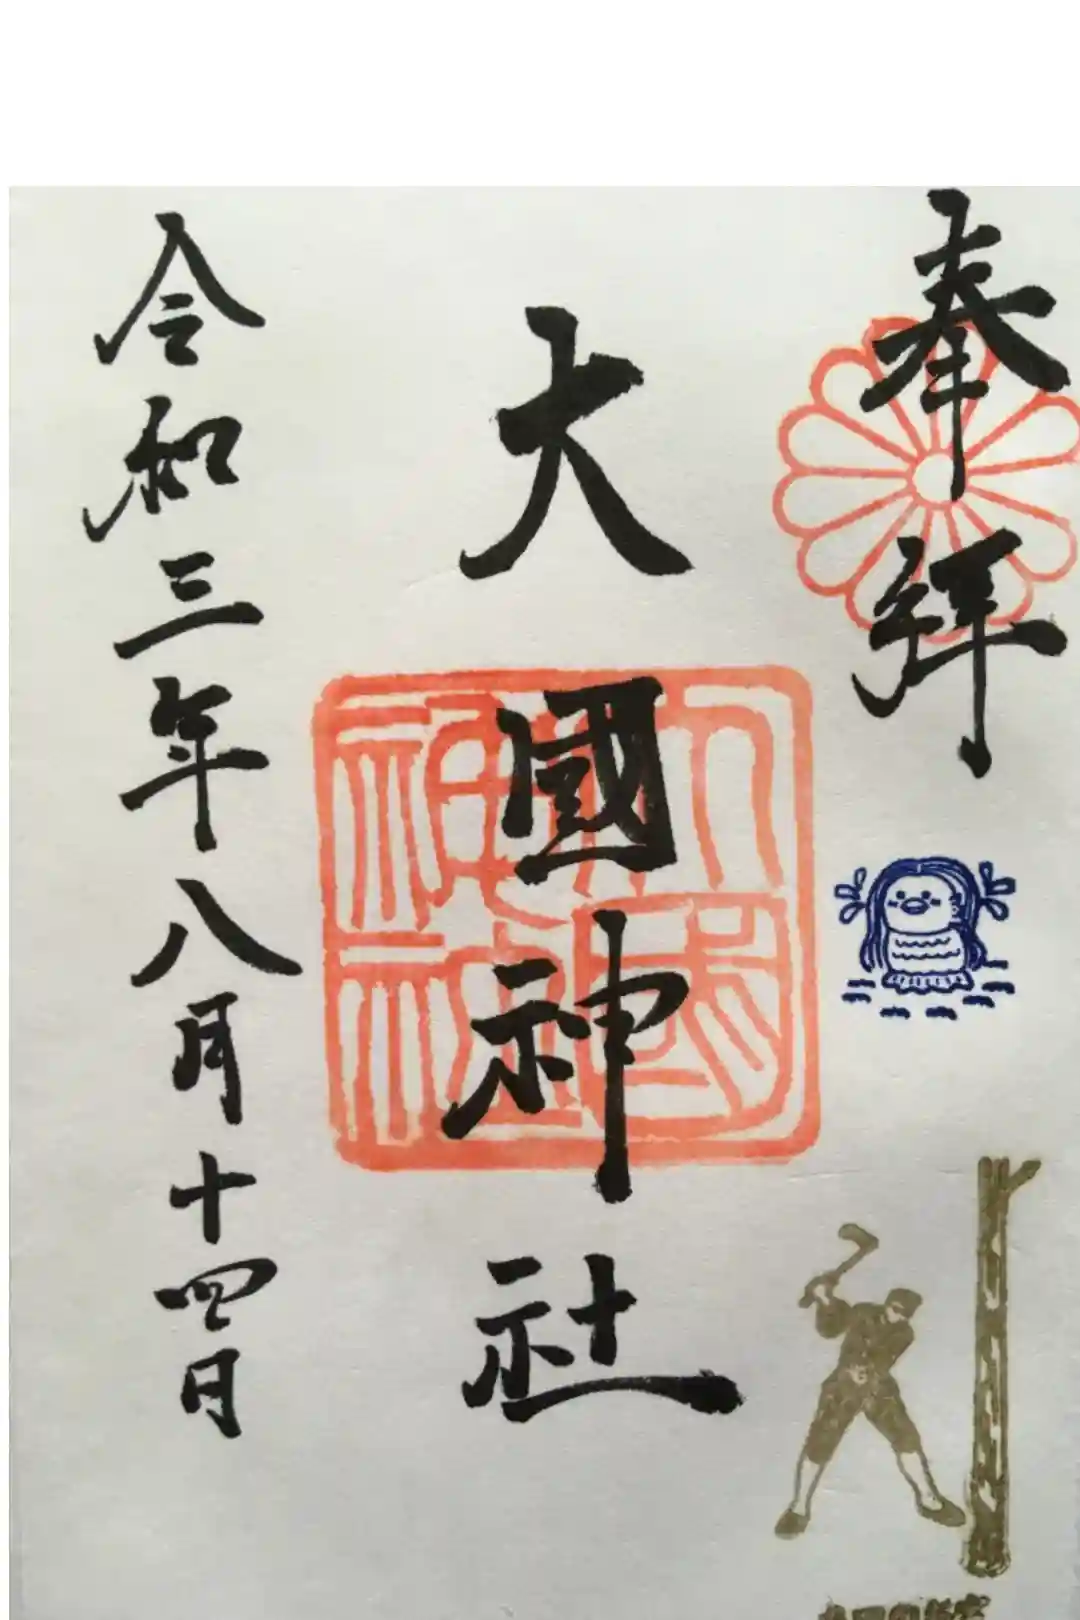 奉拝
大國神社
令和三年八月十四日
大國神社